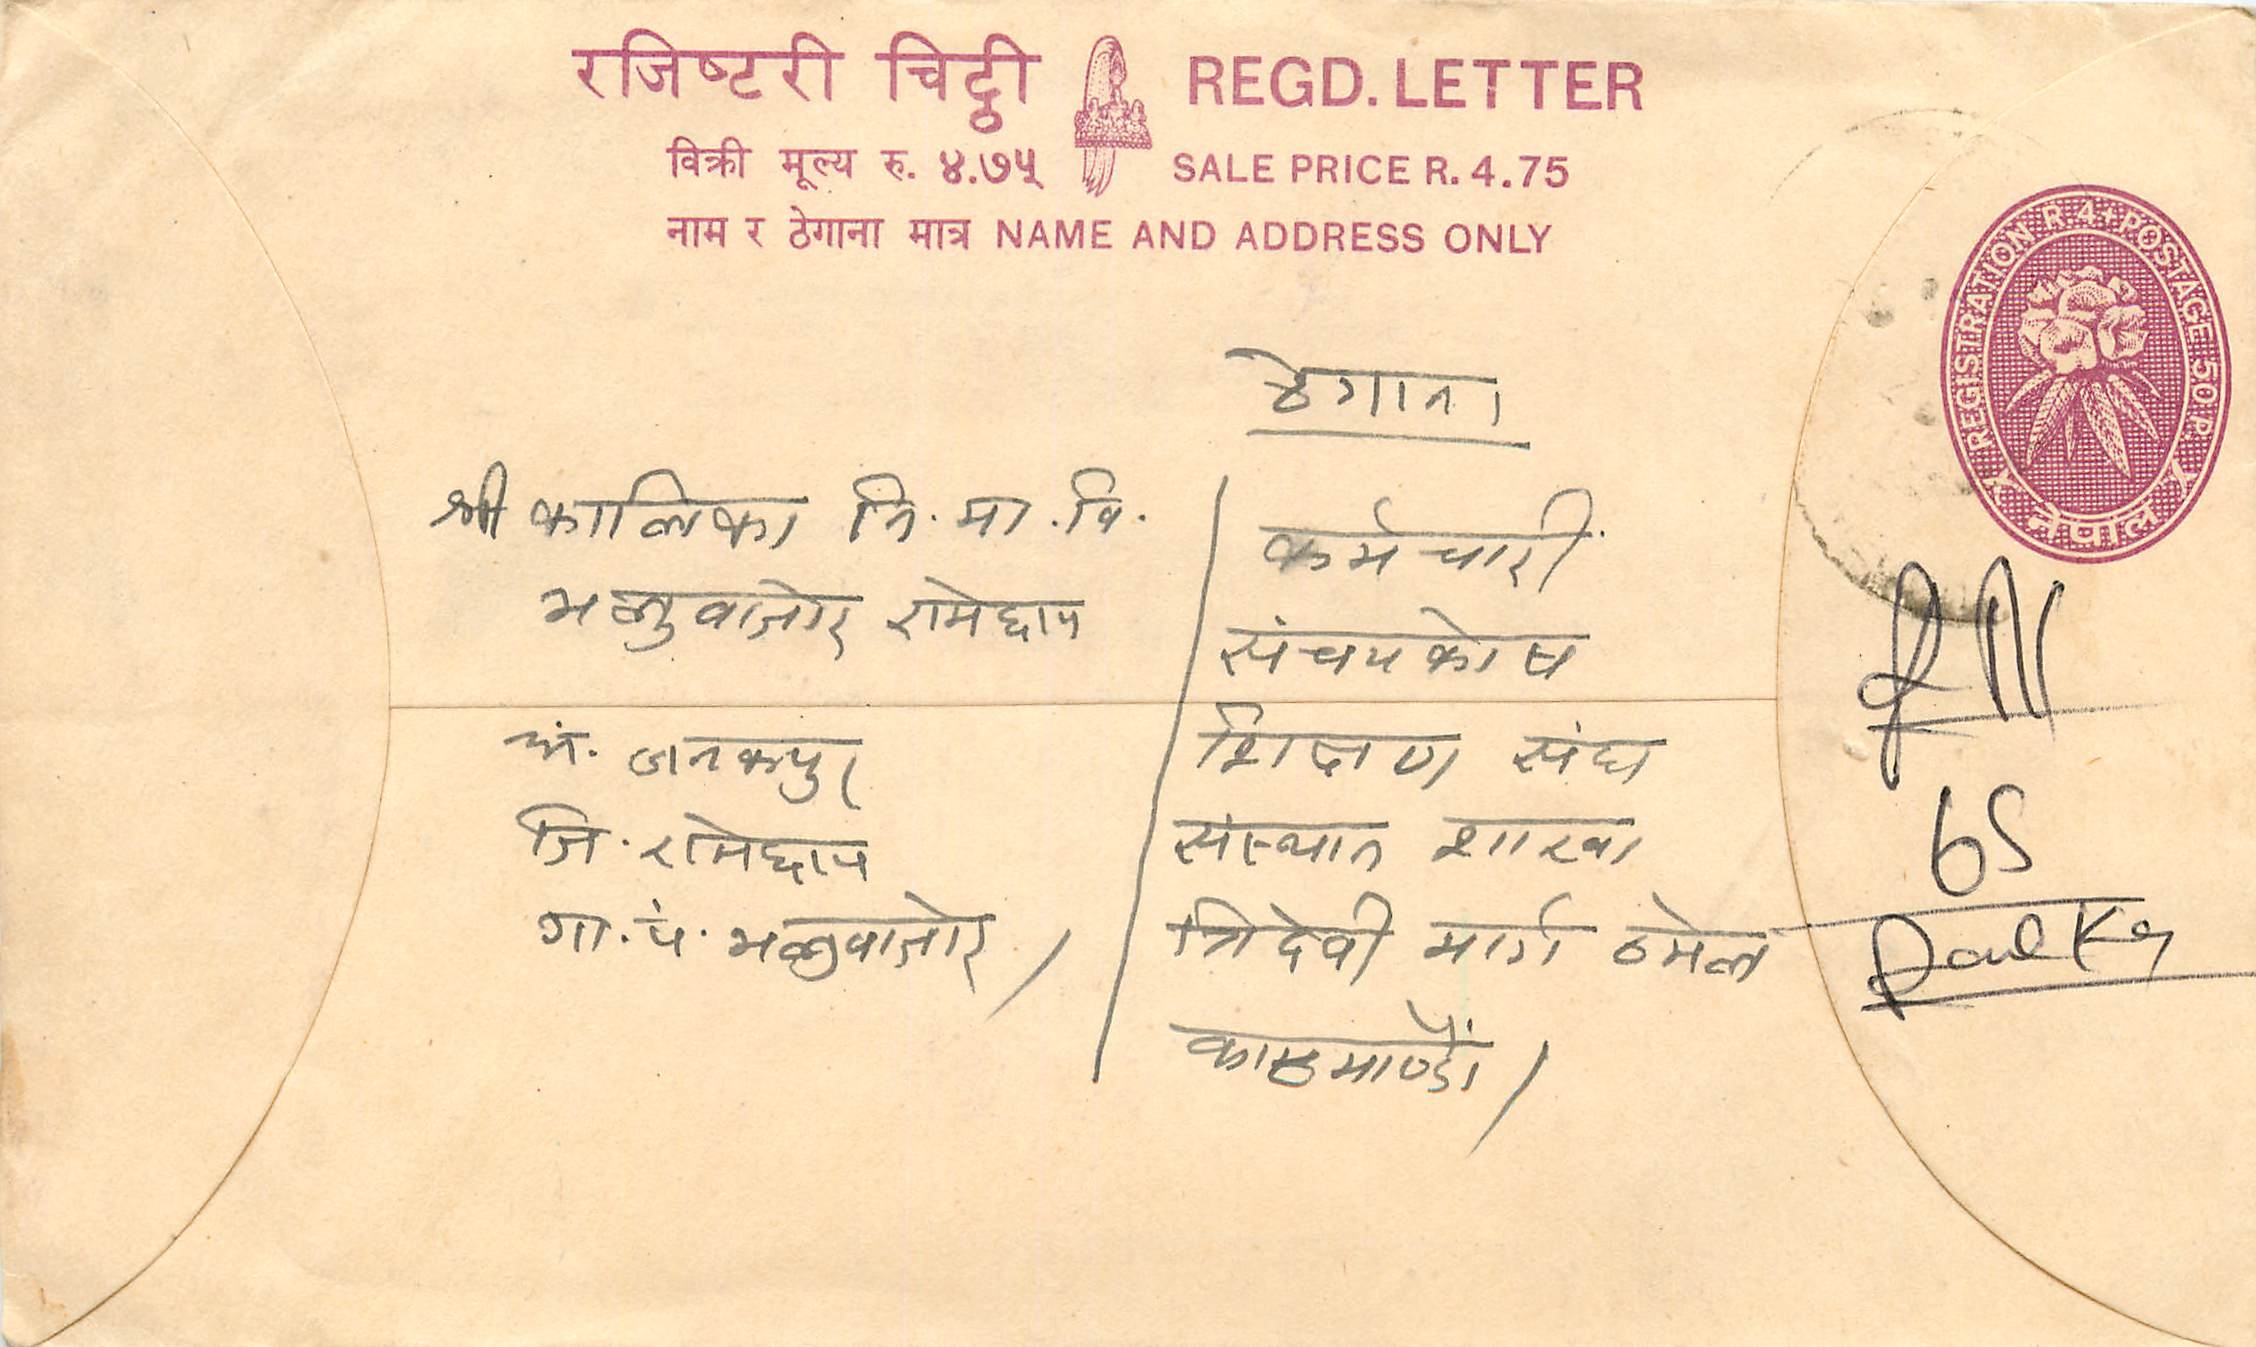 रजिष्टरी चिट्ठी REGD. LETTER
विक्री मूल्य रु. ४.७५ SALE PRICE R. 4.75
नाम र ठेगाना मात्र NAME AND ADDRESS ONLY
REGISTRATION R. 4+POSTAGE 50 P.
नेपाल
ठेगाना
श्री कालिका नि. मा. वि.
रामेछाप
अं. जनकपुर
जि. रामेछाप
गा. पं.
कर्मचारी
संचयकोष
शिक्षण संघ
संस्थान शाखा
त्रिदेवी मार्ग ठमेल
काठमाण्डौं
65